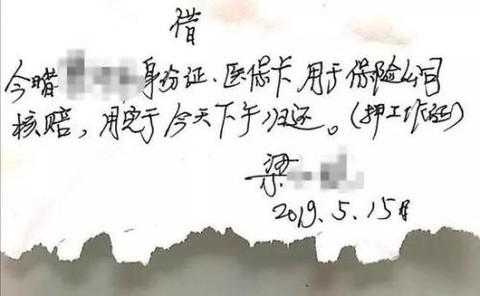 借
今借身份证、医保卡用于保险公司
核赔,用完于今天下午归还。(押工作证)
梁
2019.5.15日